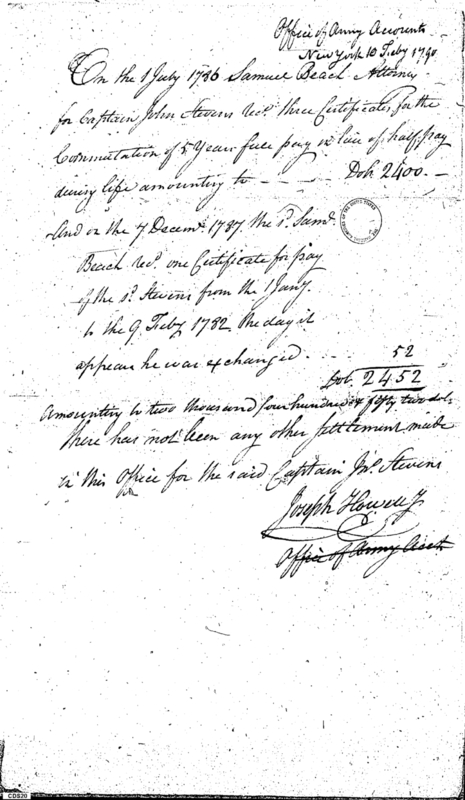 Office of Army Accounts
New York 10 Feby 1790
On the 1 July 1786 Samuel Beach Attorney
for Captain John Stevens Recd. three Certificates for the
Commutation of 5 Years full pay in lieu of half pay
during life amounting to - - - - Dols 2400. -
And on the 7 Decemr. 1787 the sd. Saml.
Beach Recd. one Certificate for pay
of the sd. Stevens from the 1 Jany.
to the 9 Feby 1782 the day it
appears he was exchanged . . . . 52
Dol. 2452
Amounting to two thousand four hundred & fifty two dols.
There has not been any other settlement made
in this Office for the said Captain Jno. Stevens
Joseph Howell Jr
Office of Army Acct
CDS20